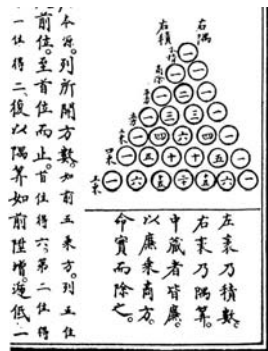 右隅
右積
一
一 一
一 二 一
一 三 三 一
一 四 六 四 一
一 五 十 十 五 一
一 六 十五 二十 十五 六 一
左袤乃積數。
右袤乃隅算。
中藏者皆廉。
以廉乘商方。
命實而除之。
本源。列所開方數。如前五乘方。列五位
前位。至首位而止。首位得六。第二位得
一位得二。復以隅算如前陞增。遞低一